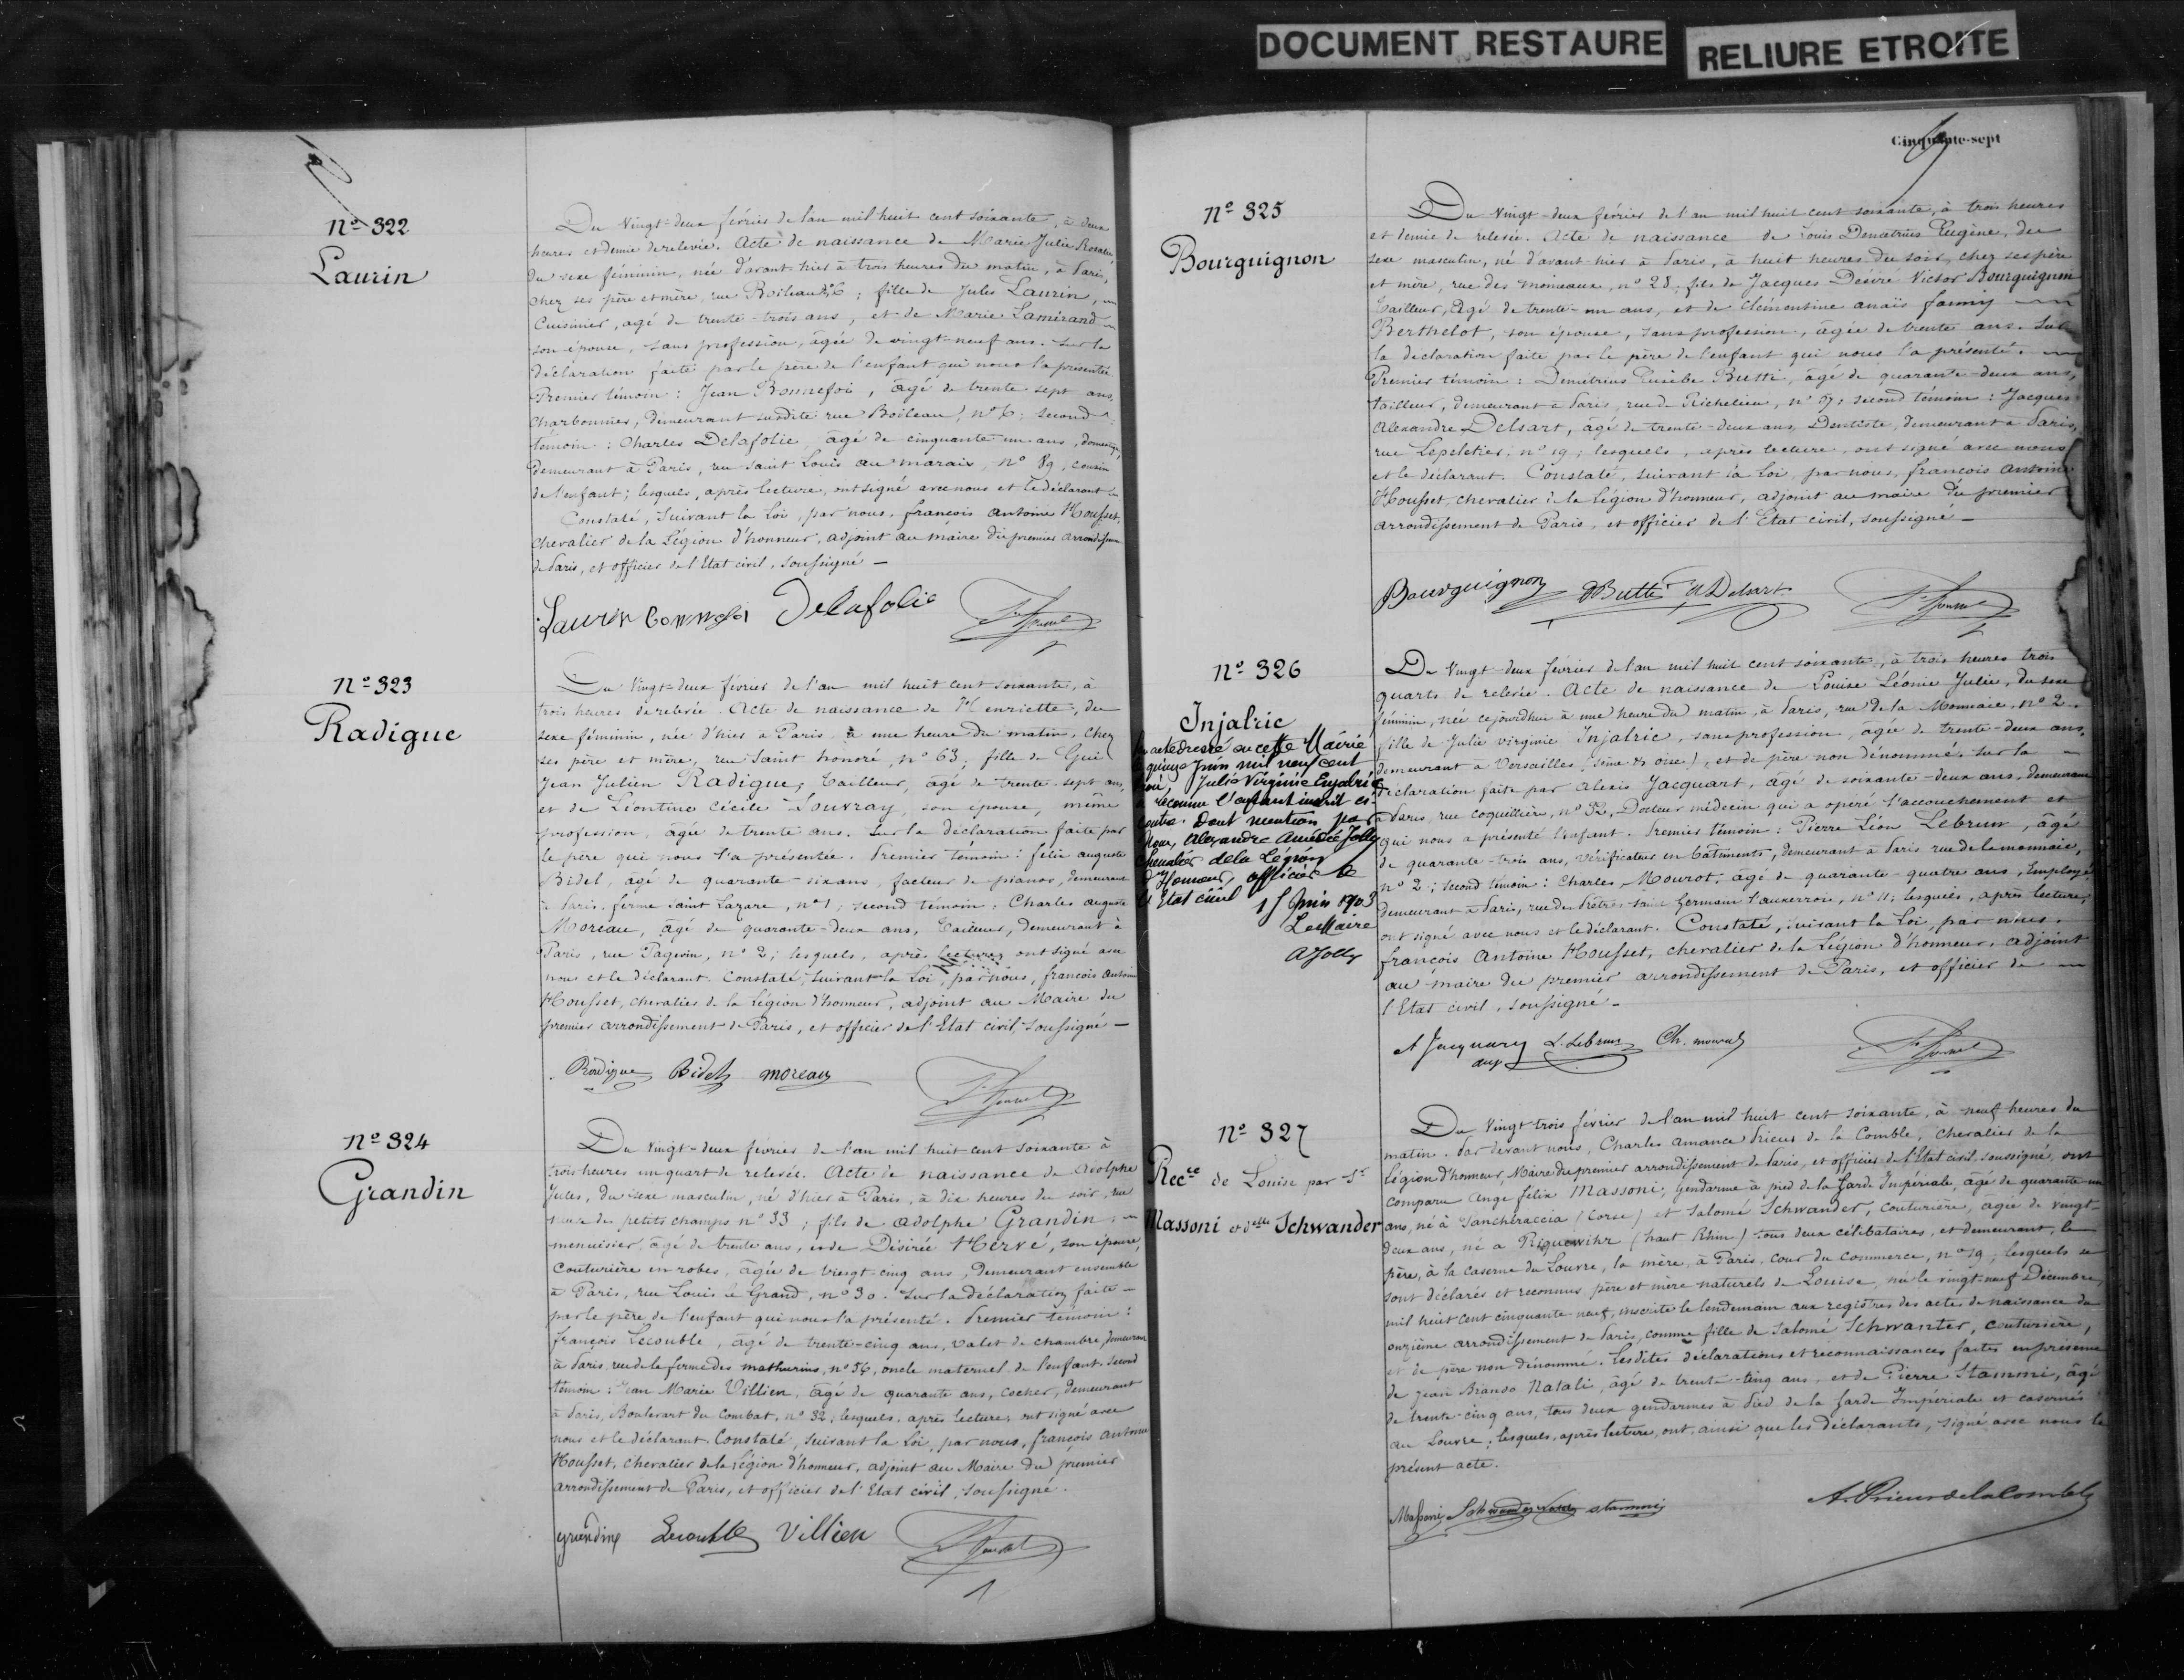 DOCUMENT RESTAURE
RELIURE ETROITE
Nº 322
Laurin
Du vingt-deux février de l'an mil huit cent soixante, à deux
heures et demie de relevée. Acte de naissance de Marie Julie Rosalie
du sexe féminin, née d'avant-hier à trois heures du matin, à Paris,
chez ses père et mère, rue Boileau nº 6; fille de Jules Laurin,
Cuisinier, agé de trente-trois ans, et de Marie Lamirand
son épouse, sans profession, âgée de vingt-neuf ans. Sur la
déclaration faite par le père de l'enfant qui nous l'a présentée
Premier témoin: Jean Bonnefoi, âgé de trente sept ans,
charbonnier, demeurant susdite rue Boileau, nº 6; second
témoin: Charles Delafolie, âgé de cinquante un ans,
demeurant à Paris, rue Saint Louis au marais, nº 89, cousin
de l'enfant; lesquels, après lecture, ont signé avec nous et le déclarant
Constaté, suivant la Loi, par nous, françois antoine Housset,
chevalier de la Légion d'honneur, adjoint au maire du premier arrondissement
de Paris, et officier de l'Etat civil, soussigné —
Laurin Bonnefoi Delafolie
Nº 323
Radigue
Du vingt-deux février de l'an mil huit cent soixante, à
trois heures de relevée. Acte de naissance de Henriette, du
sexe féminin, née d'hier à Paris à une heure du matin, chez
ses père et mère, rue Saint honoré, nº 63; fille de Gui
Jean Julien Radigue, Tailleur, âgé de trente-sept ans,
et de Léontine Cécile Souvray, son épouse, même
profession, âgée de trente ans. Sur la déclaration faite par
le père qui nous l'a présentée. Premier témoin: félix auguste
Bidel, âgé de quarante-six ans, facteur de pianos, demeurant
à Paris, ferme Saint Lazare, nº 1; second témoin: Charles auguste
Moreau, âgé de quarante-deux ans, Tailleur, demeurant à
Paris, rue Pagevin, nº 2; lesquels, après lecture, ont signé avec
nous et le déclarant. Constaté, suivant la Loi, par nous, françois antoine
Housset, chevalier de la Légion d'honneur, adjoint au Maire du
premier arrondissement de Paris, et officier de l'Etat civil, soussigné —
Radigue Bidel moreau
Nº 324
Grandin
Du vingt-deux février de l'an mil huit cent soixante à
trois heures un quart de relevée. Acte de naissance de Adolphe
Jules, du sexe masculin, né d'hier à Paris, à dix heures du soir, rue
neuve des petits champs nº 33; fils de Adolphe Grandin,
menuisier, âgé de trente ans, et de Désirée Hervé, son épouse,
Couturière en robes, âgée de vingt-cinq ans, demeurant ensemble
à Paris, rue Louis le Grand, nº 30. Sur la déclaration faite
par le père de l'enfant qui nous l'a présenté. Premier témoin:
françois Lecouble, âgé de trente-cinq ans, valet de chambre, demeurant
à Paris, rue de la ferme des mathurins, nº 56, oncle maternel de l'enfant. Second
témoin: Jean Marie Villien, âgé de quarante ans, cocher, demeurant
à Paris, Boulevart du Combat, nº 32; lesquels, après lecture, ont signé avec
nous et le déclarant. Constaté, suivant la Loi, par nous, françois antoine
Housset, chevalier de la Légion d'honneur, adjoint au Maire du premier
arrondissement de Paris, et officier de l'Etat civil, soussigné.
grandin Lecouble Villien
Cinquante-sept
Nº 325
Bourguignon
Du vingt-deux février de l'an mil huit cent soixante, à trois heures
et demie de relevée. Acte de naissance de Louis Démétrius Eugène, du
sexe masculin, né d'avant-hier à Paris, à huit heures du soir, chez ses père
et mère, rue des moineaux, nº 28; fils de Jacques Désiré Victor Bourguignon
Tailleur, âgé de trente-un ans, et de Clémentine anaïs fanny
Berthelot, son épouse, sans profession, âgée de trente ans. Sur
la déclaration faite par le père de l'enfant qui nous l'a présenté.
Premier témoin: Démétrius Eusèbe Butti, âgé de quarante-deux ans,
tailleur, demeurant à Paris, rue de Richelieu, nº 57; second témoin: Jacques
Alexandre Delsart, âgé de trente-deux ans, Dentiste, demeurant à Paris,
rue Lepeletier, nº 19; lesquels, après lecture, ont signé avec nous
et le déclarant. Constaté, suivant la Loi, par nous, francois antoine
Housset, chevalier de la Légion d'honneur, adjoint au maire du premier
arrondissement de Paris, et officier de l'Etat civil, soussigné —
Bourguignon Butti A Delsart
Nº 326
Injalric
acte dressé en cette Mairie
quinze Juin mil neuf cent
trois, Julie Virginie Enjalric
a reconnu l'enfant inscrit ci-
contre. Dont mention par
Nous, Alexandre Amédée Jolly
Chevalier de la Légion
d'Honneur, officier de
l'Etat civil 15 Juin 1903
Le Maire
A Jolly
Du vingt-deux février de l'an mil huit cent soixante, à trois heures trois
quarts de relevée. Acte de naissance de Louise Léonie Julie, du sexe
féminin, née cejourdhui à une heure du matin, à Paris, rue de la Monnaie, nº 2.
fille de Julie virginie Injalric, sans profession, âgée de trente-deux ans,
demeurant à Versailles (Seine & oise), et de père non dénommé. Sur la
déclaration faite par Alexis Jacquart, âgé de soixante-deux ans, demeurant
à Paris, rue coquillière, nº 32, Docteur médecin qui a opéré l'accouchement et
qui nous a présenté l'enfant. Premier témoin: Pierre Léon Lebrun, âgé
de quarante-trois ans, vérificateur en bâtiments, demeurant à Paris rue de la monnaie,
nº 2; second témoin: Charles Mourot, âgé de quarante-quatre ans, Employé
demeurant à Paris, rue des Prêtres-Saint Germain l'auxerrois, nº 11; lesquels, après lecture,
ont signé avec nous et le déclarant. Constaté, suivant la Loi, par nous,
françois Antoine Housset, chevalier de la Légion d'honneur, adjoint
au maire du premier arrondissement de Paris, et officier de
l'Etat civil, soussigné —
A Jacquart L. Lebrun Ch. mourot
Nº 327
Recce de Louise par Sr
Massoni et delle Schwander
Du vingt trois février de l'an mil huit cent soixante, à neuf heures du
matin. Par devant nous, Charles Amance Prieur de la Comble, chevalier de la
Légion d'honneur, Maire du premier arrondissement de Paris, et officier de l'Etat civil, soussigné, ont
comparu Ange félix Massoni, gendarme à pied de la Garde Impériale, âgé de quarante-un
ans, né à Sanchéraccia (Corse) et Salomé Schwander, couturière, âgée de vingt-
deux ans, né à Riquewihr (haut Rhin) tous deux célibataires, et demeurant, le
père, à la caserne du Louvre, la mère, à Paris, cour du Commerce, nº 19; lesquels se
sont déclarés et reconnus père et mère naturels de Louise, née le vingt-neuf Décembre
mil huit cent cinquante neuf, inscrite le lendemain aux registres des actes de naissance du
onzième arrondissement de Paris, comme fille de Salomé Schwanter, couturière,
et de père non dénommé. Lesdites déclarations et reconnaissances faites en présence
de Jean Natali, âgé de trente-cinq ans, et de Pierre Stammi, âgé
de trente-cinq ans, tous deux gendarmes à Pied de la Garde Impériale et casernés
au Louvre; lesquels, après lecture, ont, ainsi que les déclarants, signé avec nous le
présent acte.
Massoni Schwander stammi
A. Prieur de la Comble